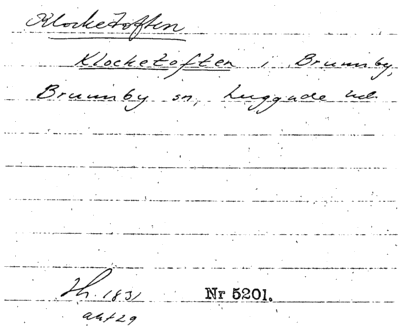 Klocketoften
Klocketoften i Brunnby,
Brunnby sn, Luggude hd.
Th. 1831 Nr 5201.
akt 29